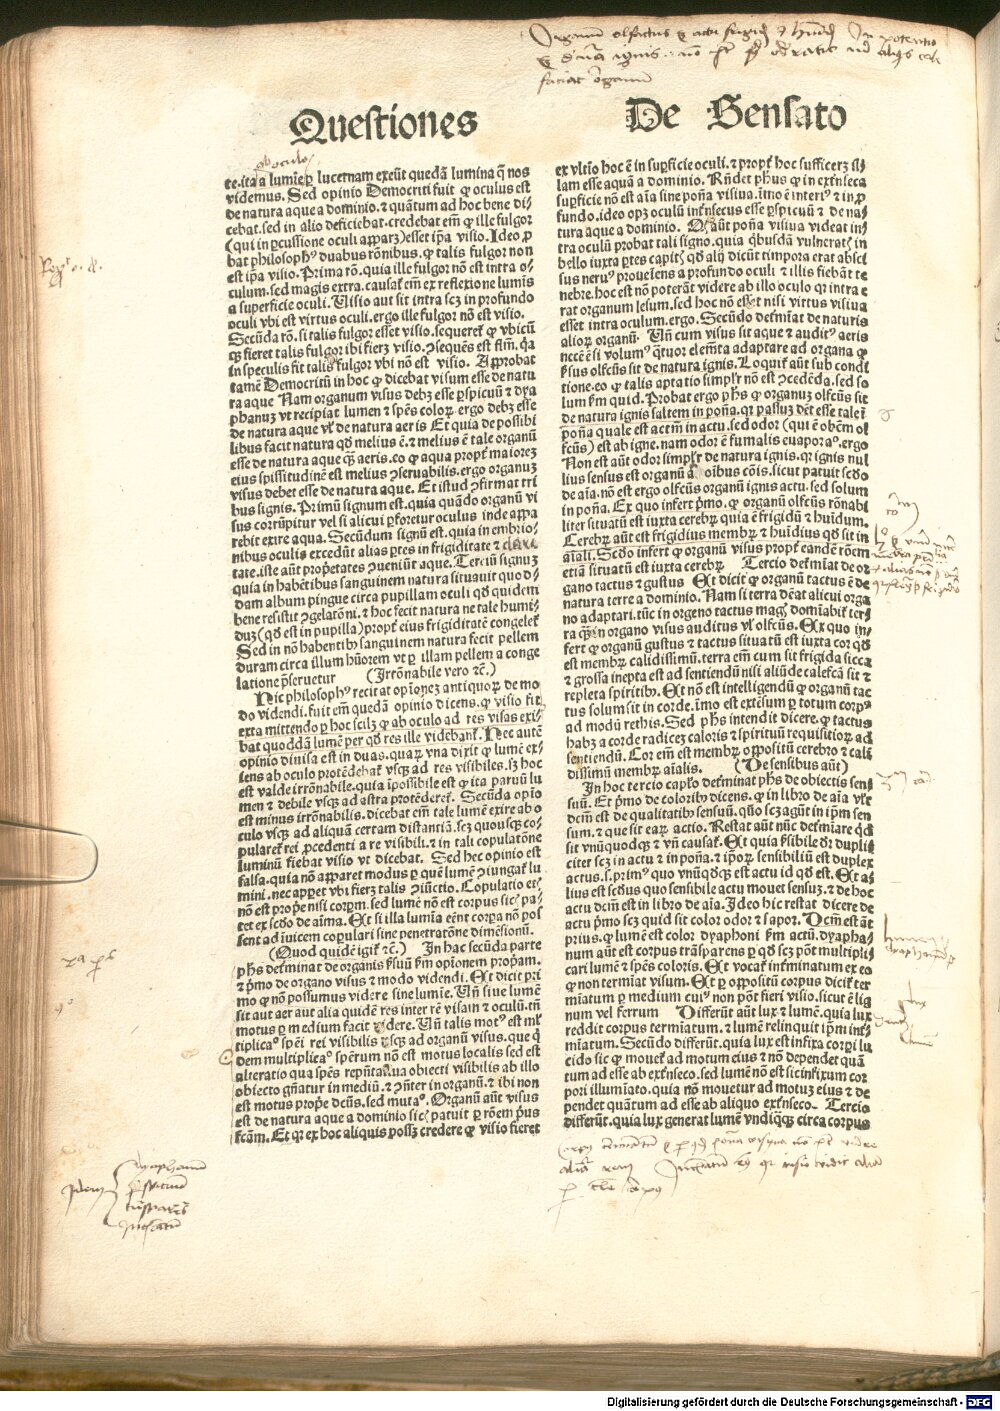 Questiones De Sensato
te. ita a lumīe ꝑ lucernam exeūt quedā lumina q̄ nos
videmus. Sed opinio Democriti fuit ꝙ oculus est
de natura aque a dominio. ⁊ quātum ad hoc bene di⸗
cebat. sed in alio deficiebat. credebat em̄ ꝙ ille fulgor
(qui in ꝑcussione oculi apparꝫ) esset ip̄a visio. Ideo ꝓ
bat philosophꝰ duabus rōnibus. ꝙ talis fulgor non
est ip̄a visio. Prima rō. quia ille fulgor nō est intra o⸗
culum. sed magis extra. causat̄ em̄ ex reflexione lumīs
a superficie oculi. Visio aut sit intra scꝫ in profundo
oculi vbi est virtus oculi. ergo ille fulgor nō est visio.
Secūda rō. si talis fulgor esset visio. sequeret̄ ꝙ vbicū
qꝫ fieret talis fulgor ibi fierꝫ visio. ꝯseqūēs est flm̄. qꝛa
in speculis fit talis fulgor vbi nō est visio. Approbat
tamē Democritū in hoc ꝙ dicebat visum esse de natu
ra aque Nam organum visus debꝫ esse ꝑspicuū ⁊ dya
phanuꝫ vt recipiat lumen ⁊ spēs coloꝝ. ergo debꝫ esse
de natura aque vl̄ de natura aeris Et quia de possibi
libus facit natura qd̄ melius ē. ⁊ melius ē tale organū
esse de natura aque qꝫ aeris. eo ꝙ aqua propt̄ maioreꝫ
eius spissitudinē est melius ꝯseruabilis. ergo organuꝫ
visus debet esse de natura aque. Et istud ꝯfirmat tri
bus signis. Primū signum est. quia quādo organū vi
sus corrūpitur vel si alicui ꝑforetur oculus inde appa
rebit exire aqua. Secūdum signū est. quia in embrio⸗
nibus oculis excedūt alias ꝑtes in frigiditate ⁊ clari
tate. iste aūt prop̄etates ꝯueniūt aque. Terciū signuꝫ
quia in habētibus sanguinem natura situauit quo d⸗
dam album pingue circa pupillam oculi qd̄ quidem
bene resistit ꝯgelatōni. ⁊ hoc fecit natura ne tale humi⸗
duꝫ (qd̄ est in pupilla) propt̄ eius frigiditatē congelet̄
Sed in nō habentibꝰ sanguinem natura fecit pellem
duram circa illum hūorem vt ꝑ illam pellem a conge
latione p̄seruetur (Irrōnabile vero ⁊c̄.)
Hic philosophꝰ recitat opīoneꝫ antiquoꝝ de mo
do videndi. fuit em̄ quedā opinio dicens. ꝙ visio fit
exta mittendo ꝑ hoc scilꝫ ꝙ ab oculo ad res visas exi⸗
bat quoddā lumē per qd̄ res ille videbant̄. Nec autē
opinio diuisa est in duas. quaꝝ vna dixit ꝙ lumē ex⸗
iens ab oculo protēdebat̄ vsqꝫ ad res visibiles. sꝫ hoc
est valde irrōnabile. quia īpossibile est ꝙ ita paruū lu
men ⁊ debile vsqꝫ ad astra protēderet̄. Secūda opīo
est minus irrōnabilis. dicebat em̄ tale lumē exire ab o
culo vsqꝫ ad aliquā certam distantiā. scꝫ quousqꝫ co⸗
pularet̄ rei ꝓcedenti a re visibili. ⁊ in tali copulatōne
luminū fiebat visio vt dicebat. Sed hec opinio est
falsa. quia nō apparet modus ꝑ quē lumē ꝯiungat̄ lu
mini. nec apparet vbi fierꝫ talis ꝯiūctio. Copulatio et⸗
nō est prop̄e nisi corpꝝ. sed lumē nō est corpus sicꝰ pa⸗
tet ex scd̄o de aīma. Et si illa lumīa eēnt corpa nō pos
sent ad īuicem copulari sine penetratōne dimēsionū.
(Quod quidē igit̄ ⁊c̄.) In hac secūda parte
phs determinat de organis ẜsuū ẜm opīonem propam.
⁊ prīmo de organo visus ⁊ modo videndi. Et dicit pri
mo ꝙ nō possumus videre sine lumīe. Vn̄ siue lumē
sit aut aer aut alia quidē res inter rē visam ⁊ oculū. tn̄
motus ꝑ medium facit videre. Vn̄ talis motꝰ est ml̄
tiplicaº spēi rei visibilis vsqꝫ ad organū visus. que qͥ
dem multiplicaº spērum nō est motus localis sed est
alteratio qua spēs rep̄ntatiua obiecti visibilis ab illo
obiecto gn̄atur in mediū. ⁊ ꝯn̄ter in organū. ⁊ ibi non
est motus prop̄e dcūs. sed mutaº. Organū aūt visus
est de natura aque a dominio sicꝰ patuit ꝑ rōem p̄us
fcām. Et qꝛ ex hoc aliquis possꝫ credere ꝙ visio fieret
ex vltīo hoc ē in suꝑficie oculi. ⁊ propt̄ hoc sufficerꝫ il⸗
lam esse aquā a dominio. Rn̄det phus ꝙ in extrīseca
suꝑficie nō est aīa siue poña visiua. īmo ē interiꝰ ⁊ in ꝓ
fundo. ideo opꝫ oculū intrīsecus esse ꝑspicuū ⁊ de na⸗
tura aque a dominio. Qꝙ aūt poña visiua videat in⸗
tra oculū probat tali signo. quia qͥbusdā vulnerat̄ in
bello iuxta ꝑtes capitꝭ qd̄ alij dicūt timpora erat absci
sus neruꝰ proueīens a profundo oculi ⁊ illis fiebāt te
nebre. hoc est nō poterāt videre ab illo oculo qꝛ intra e
rat organum lesum. sed hoc nō esset nisi virtus visiua
esset intra oculum. ergo. Secūdo determīat de naturis
alioꝝ organū. Vn̄ cum visus sit aque ⁊ auditꝰ aeris
nccē ē si volumꝰ qͣtuor elem̄ta adaptare ad organa ꝙ
ẜsus olfcūs sit de natura ignis. Loquit̄ aūt sub condi
tione. eo ꝙ talis aptatio simplr̄ nō est ꝯcedēda. sed so
lum ẜm quid. Probat ergo phs ꝙ organuꝫ olfcūs sit
de natura ignis saltem in poña. qꝛ passuꝫ dēt esse tale ī
poña quale est actm̄ in actu. sed odor (qui ē obēm ol
fcūs) est ab igne. nam odor ē fumalis euaporaº. ergo
Non est aūt odor simplr̄ de natura ignis. qꝛ ignis nul
lius sensus est organū ⁊ oībus cōis. sicut patuit scd̄o
de aīa. nō est ergo olfcūs organū ignis actu. sed solum
in poña. Ex quo infert prīmo. ꝙ organū olfcūs rōnabi
liter situatū est iuxta cerebꝝ quia ē frigidū ⁊ hūidum.
Cerebꝝ aūt est frigidius membꝝ ⁊ hūidius qd̄ sit in
aīali. Scd̄o infert ꝙ organū visus propt̄ eandē rōem
etiā situatū est iuxta cerebꝝ Tercio determīat de or⸗
gano tactus ⁊ gustus Et dicit ꝙ organū tactus ē de
natura terre a dominio. Nam si terra dēat alicui orga
no adaptari. tūc in orgeno tactus magꝭ domīabit̄ ter⸗
ra qͣ̄ in organo visus auditus vl̄ olfcūs. Ex quo in⸗
fert ꝙ organū gustus ⁊ tactus situatū est iuxta cor qd̄
est membꝝ calidissimū. terra em̄ cum sit frigida sicca
⁊ grossa inepta est ad sentiendū nisi aliūde calefcā sit ⁊
repleta spiritibꝰ. Et nō est intelligendū ꝙ organū tac
tus solum sit in corde. īmo est extēsum ꝑ totum corpꝰ
ad modū rethis. Sed phs intendit dicere. ꝙ tactus
habꝫ a corde radiceꝫ caloris ⁊ spirituū requisitioꝝ ad
sentiendū. Cor em̄ est membꝝ oppositū cerebro ⁊ cali
dissimū membꝝ aīalis. (De sensibus aūt)
In hoc tercio caplo determinat phs de obiectis sen⸗
suū. Et prīmo de coloribꝰ dicens. ꝙ in libro de aīa vl̄r
dcm̄ est de qualitatibꝰ sensuū. quō scꝫ agūt in ipm̄ sen
sum. ⁊ que sit eaꝝ actio. Restat aūt nūc determīare qͥd
sit vnūquodqꝫ ⁊ vn̄ causat̄. Et quia ẜsibile dr̄ dupli⸗
citer scꝫ in actu ⁊ in poña. ⁊ ipoꝝ sensibiliū est duplex
actus. s. primꝰ quo vnūqd̄qꝫ est actu id qd̄ est. Et a⸗
lius est scd̄us quo sensibile actu mouet sensuꝫ. ⁊ de hoc
actu dcm̄ est in libro de aīa. Ideo hic restat dicere de
actu prīmo scꝫ quid sit color odor ⁊ sapor. Dcm̄ est āt
prius. ꝙ lumē est color dyaphoni ẜm actū. dyapha⸗
num aūt est corpus trāsparens ꝑ qd̄ scꝫ pōt multipli⸗
cari lumē ⁊ spēs coloris. Et vocat̄ īnterminatum ex eo
ꝙ non termīat visum. Et ꝑ oppositū corpus dicit̄ ter
mīatum ꝑ medium cuiꝰ non pōnt fieri visio. sicut ē lig
num vel ferrum Differūt aūt lux ⁊ lumē. quia lux
reddit corpus termīatum. ⁊ lumē relinquit ipm̄ inter⸗
mīatum. Secūdo differūt. quia lux est infixa corpī lu
cido sic ꝙ mouet̄ ad motum eius ⁊ nō dependet quā
tum ad esse ab extrīseco. sed lumē nō est sic infixum cor
pori illumīato. quia nō mouetur ad motuꝫ eius ⁊ de
pendet quātum ad esse ab aliquo extrīseco. Tercio
differūt. quia lux generat lumē vndiqꝫ circa corpus
Digitalisierung gefördert durch die Deutsche Forschungsgemeinschaft - DFG